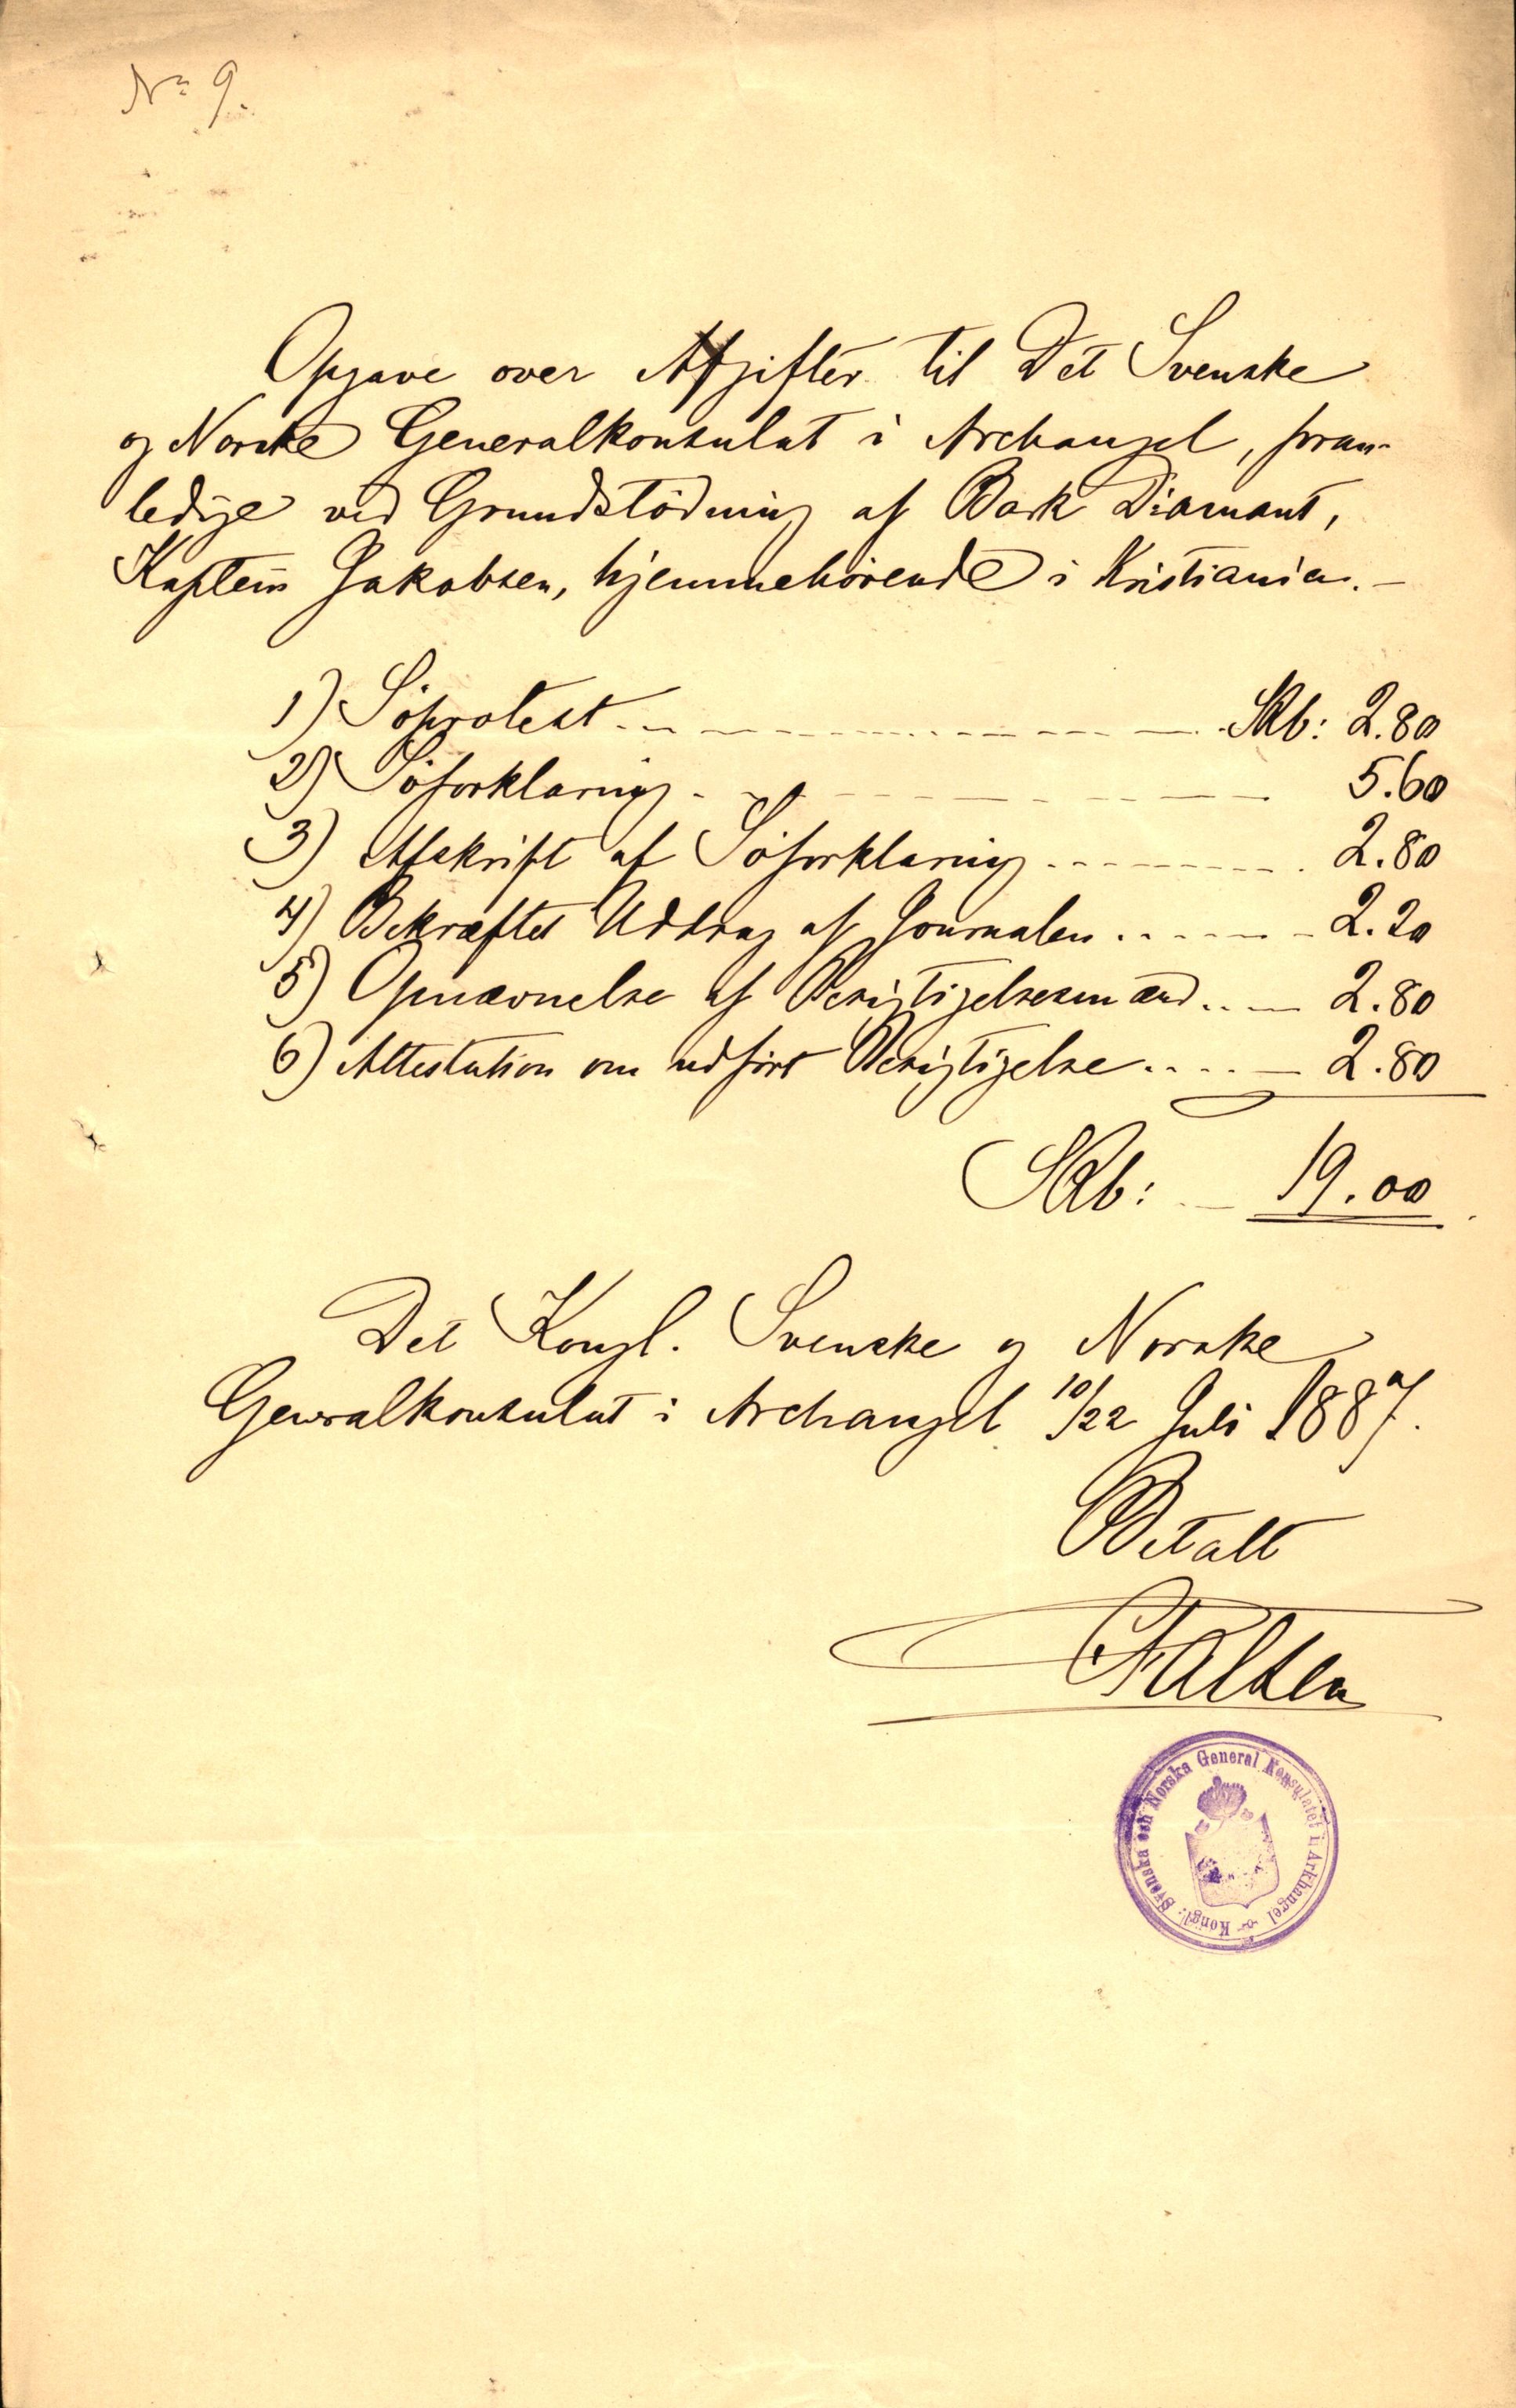 No 9.
Opgave over Afgifter til Det Svenske
og Norske Generalkonsulat i Archangel, foran-
ledige ved Grundstödning af Bark Diamant,
Kaptein Jakobsen, hjemmehörende i Kristiania. -
1) Söprotest - - - SRb: 2.80
2) Söforklaring - - - 5.60
3) Afskrift af Söforklaring - - - 2.80
4) Bekræftet Uddrag af Journalen - - - 2.20
5) Opnævnelse af Besigtigelsesmænd - - - 2.80
6) Attestation om udfört Besigtigelse - - - 2.80
SRb: - 19.00
Det Kongl. Svenske og Norske
Generalkonsulat i Archangel 10/22 Juli 1887.
Betalt
Falsen
Kongl: Svenska och Norska General Konsulatet i Arkhangel